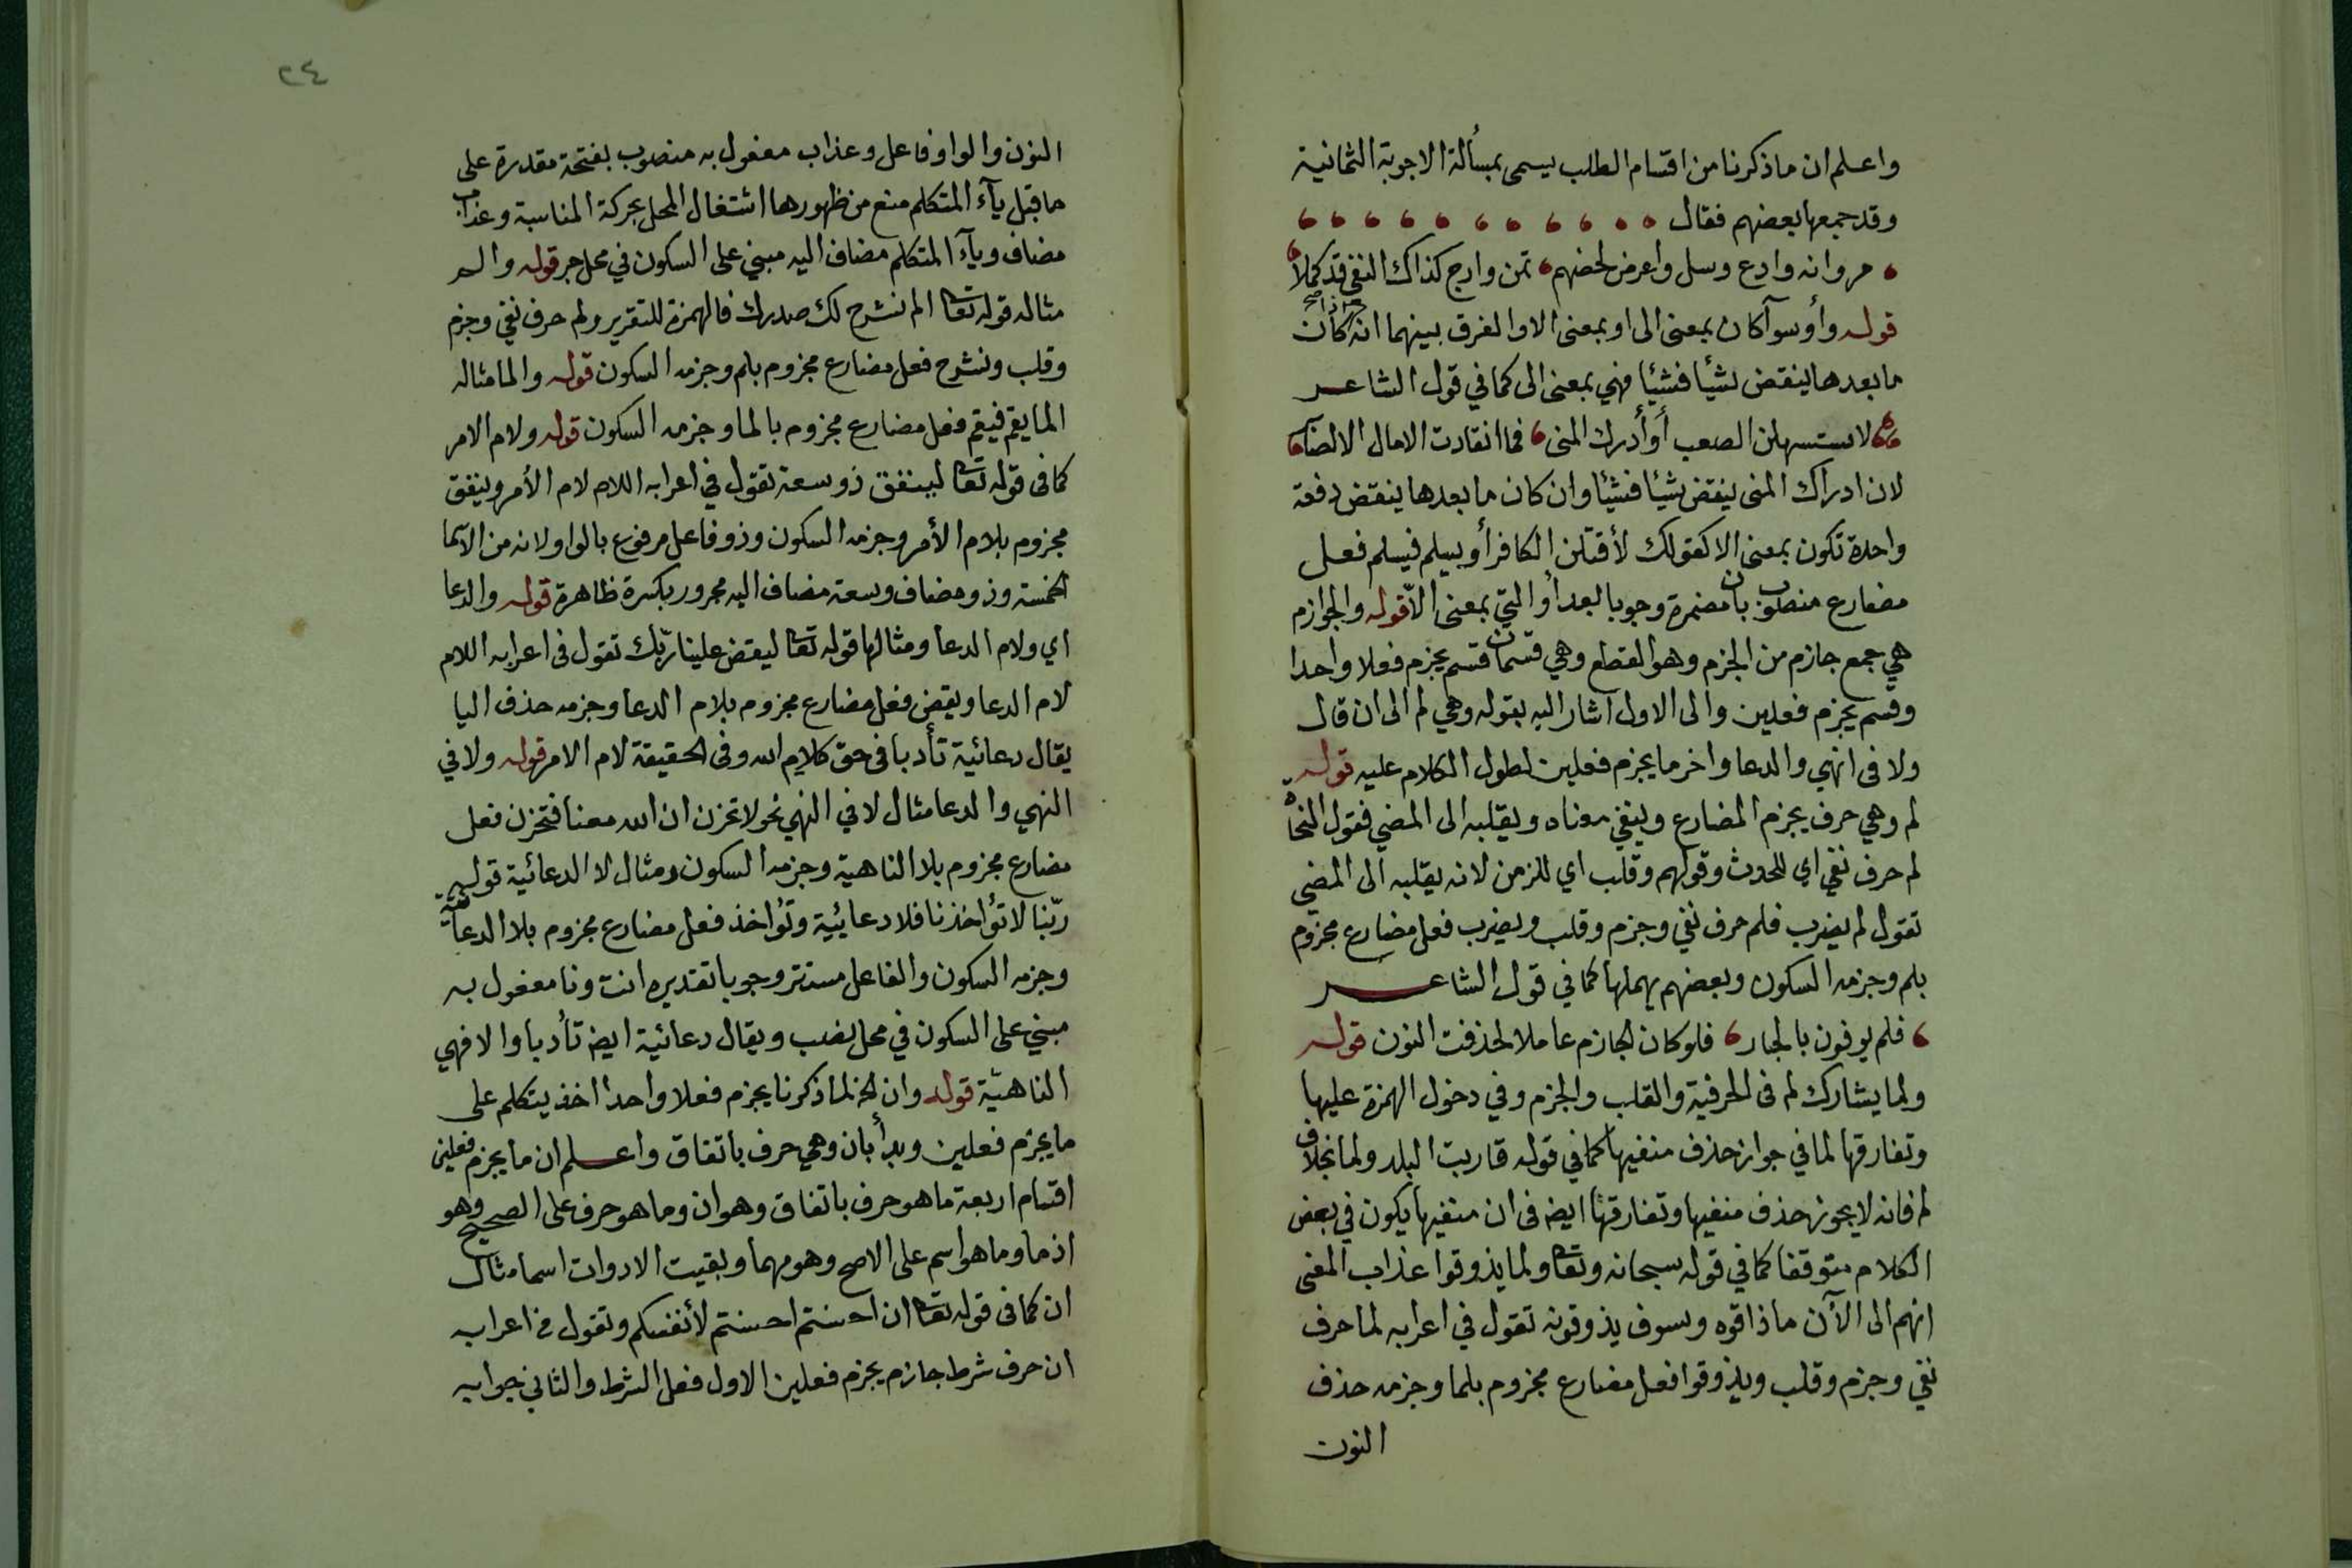 واعلم ان ما ذكرنا من اقسام الطلب يسمى بمسألة الاجوبة الثمانية
وقد جمعها بعضهم فقال
مر وانه وادع وسل واعرض لحضهم تمن وارج كذاك النفي قد كملا
قوله وأو سوآ كان بمعنى الى او بمعنى الا والفرق بينهما انه اذا كان
ما بعدها ينقض شيأ فشيأ فهي بمعنى الى كما في قول الشاعر
لاستسهلن الصعب أو أدرك المنى فما انقادت الامال الا لصابر
لان ادراك المنى ينقض شيئا فشيئا وان كان ما بعدها ينقض دفعة
واحدة تكون بمعنى الا كقولك لأقتلن الكافر أو يسلم فيسلم فعل
مضارع منصوب بان مضمرة وجوبا بعد أو التي بمعنى الاّ قوله والجوازم
هي جمع جازم من الجزم وهو القطع وهي قسمان قسم يجزم فعلا واحدا
وقسم يجزم فعلين والى الاول اشار اليه بقوله وهي لم الى ان قال
ولا فى انهي والدعا واخر ما يجزم فعلين لطول الكلام عليه قوله
لم وهي حرف يجزم المضارع وينفي معناه ويقلبه الى المضي فقول النحاة
لم حرف نفي اي للحدوث وقولهم وقلب اي للزمن لانه يقلبه الى المضي
تقول لم يضرب فلم حرف نفي وجزم وقلب ويضرب فعل مضارع مجزوم
بلم وجزمه السكون وبعضهم يهملها كما في قول الشاعر
فلم يوفون بالجار فلو كان الجازم عاملا لحذفت النون قوله
ولما يشارك لم فى الحرفية والقلب والجزم وفي دخول الهمزة عليها
وتفارقها لما في جواز حذف منفيها كما في قوله قاربت البلد ولما بخلاف
لم فانه لا يجوز حذف منفيها وتفارقها ايضه فى ان منفيها يكون في بعض
الكلام متوقفا كما في قوله سبحانه وتعا ولما يذوقوا عذاب المعنى
انهم الى الآن ما ذاقوه وسوف يذوقونه تقول في اعرابه لما حرف
نفي وجزم وقلب ويذوقوا فعل مضارع مجزوم بلما وجزمه حذف
النون
٢٤
النون والواو فاعل وعذاب مفعول به منصوب بفتحة مقدرة على
ما قبل يآء المتكلم منع من ظهورها اشتغال المحل بحركة المناسبة وعذاب
مضاف ويآء المتكلم مضاف اليه مبني على السكون في محل جر قوله والم
مثاله قوله تعا الم نشرح لك صدرك فالهمزة للتقرير ولم حرف نفي وجزم
وقلب ونشرح فعل مضارع مجزوم بلم وجزمه السكون قوله والما مثاله
الما يقم فيقم فعل مضارع مجزوم بالما وجزمه السكون قوله ولام الامر
كما فى قوله تعا لينفق ذو سعة تقول في اعرابه اللام لام الأمر وينفق
مجزوم بلام الأمر وجزمه السكون وذو فاعل مرفوع بالواو لانه من الاسما
الخمسة وذو مضاف وسعة مضاف اليه مجرور بكسرة ظاهرة قوله والدعا
اي ولام الدعا ومثالها قوله تعا ليقض علينا ربّك تقول فى اعرابه اللام
لام الدعا ويقض فعل مضارع مجزوم بلام الدعا وجزمه حذف اليا
يقال دعائية تأدبا فى حق كلام الله وفى الحقيقة لام الامر قوله ولا في
النهي والدعا مثال لا في النهي نحو لا تحزن ان الله معنا فتحزن فعل
مضارع مجزوم بلا الناهية وجزمه السكون ومثال لا الدعائية قوله
ربّنا لا تؤاخذنا فلا دعائية وتؤاخذ فعل مضارع مجزوم بلا الدعائية
وجزمه السكون والفاعل مستتر وجوبا تقديره انت ونا مفعول به
مبني على السكون في محل نصب ويقال دعائية ايضه تأدبا والا فهي
الناهيّة قوله وان الخ لما ذكرنا يجزم فعلا واحدا اخذ يتكلم على
ما يجزم فعلين وبدأ بان وهي حرف باتفاق واعلم ان ما يجزم فعلين
اقسام اربعة ما هو حرف باتفاق وهو ان وما هو حرف على الصحيح وهو
اذما وما هو اسم على الاصح وهو مهما وبقيت الادوات اسما مثال
ان كما فى قوله تعا ان احسنتم احسنتم لأنفسكم وتقول في اعرابه
ان حرف شرط جازم يجزم فعلين الاول فعل الشرط والثاني جوابه